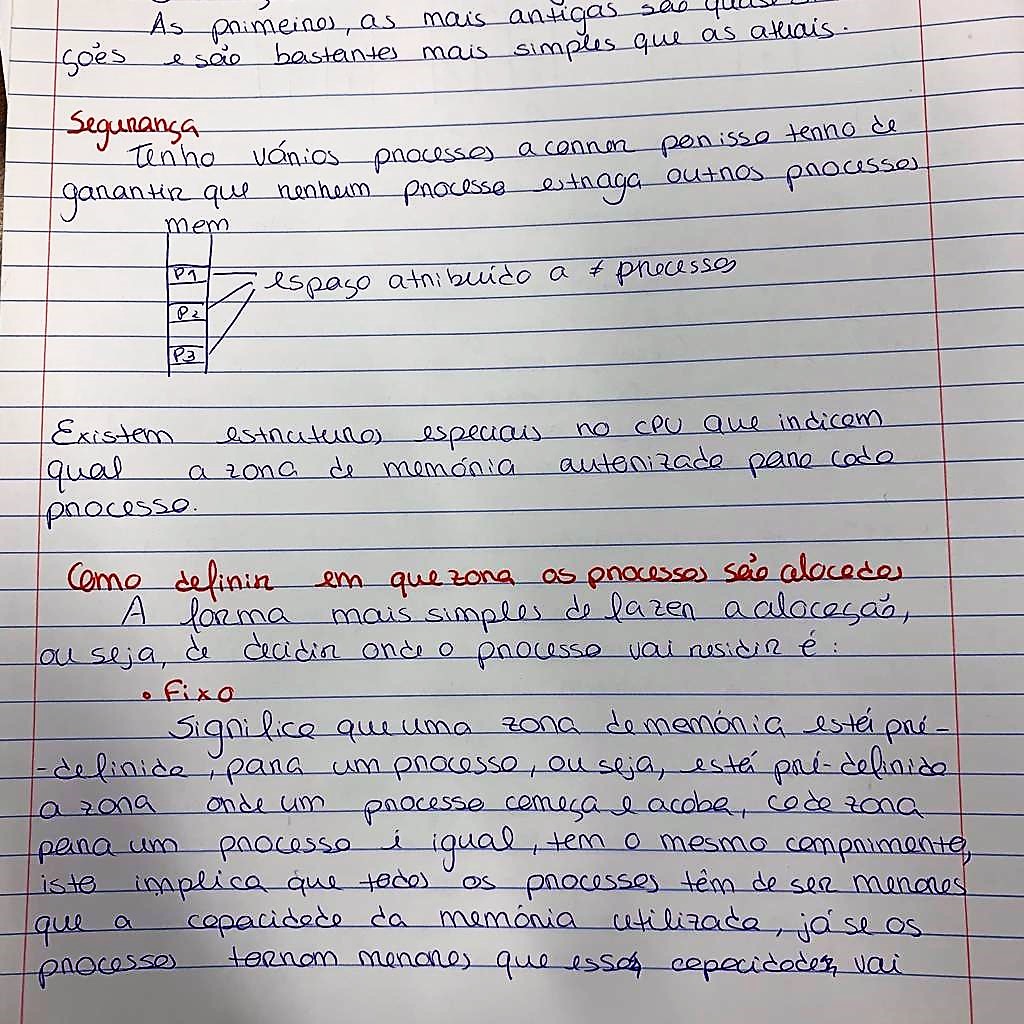 As primeiros, as mais antigas são quase
ções e são bastantes mais simples que as atuais.
Segurança
Tenho vários processos a correr por isso tenho de
garantir que nenhum processo estraga outros processos
mem
P1
espaço atribuído a ≠ processos
P2
P3
Existem estruturas especiais no CPU que indicam
qual a zona de memória autorizada para cada
processo.
Como definir em que zona os processos são alocados
A forma mais simples de fazer a alocação,
ou seja, de decidir onde o processo vai residir é:
• Fixo
Significa que uma zona de memória está pré-
-definida, para um processo, ou seja, está pré-definida
a zona onde um processo começa e acaba, cada zona
para um processo é igual, tem o mesmo comprimento,
isto implica que todos os processos têm de ser menores
que a capacidade da memória utilizada, já se os
processos tornam menores que essas capacidades, vai